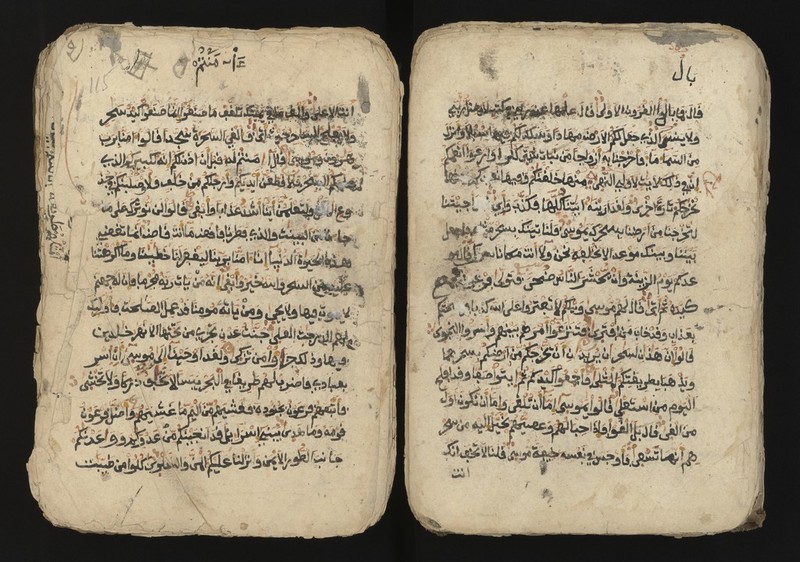 بال
قال فما بال القرون الاولى قال علمها عند ربي في كتب لا يضل ربي
ولا ينسى الذي جعل لكم الارض مهدا وسلك لكم فيها سبلا وانزل
من السماء ماء فاخرجنا به ازوجا من نبات شتى كلوا وارعوا انعمكم
ان في ذلك لايت لاولي النهى منها خلقنكم وفيها نعيدكم ومنها
نخرجكم تارة اخرى ولقد ارينه ايتنا كلها فكذب وابى قال اجئتنا
لتخرجنا من ارضنا بسحرك يموسى فلناتينك بسحر مثله فاجعل
بيننا وبينك موعدا لا نخلفه نحن ولا انت مكانا سوى قال مو
عدكم يوم الزينة وان يحشر الناس ضحى فتولى فرعون فجمع
كيده ثم اتى قال لهم موسى ويلكم لا تفتروا على الله كذبا فيسحتكم
بعذاب وقد خاب من افترى فتنزعوا امرهم بينهم واسروا النجوى
قالوا ان هذان لسحران يريدان ان يخرجكم من ارضكم بسحرهما
ويذهبا بطريقتكم المثلى فاجمعوا كيدكم ثم ايتوا صفا وقد افلح
اليوم من استعلى قالوا يموسى اما ان تلقي واما ان نكون اول
من القى قال بل القوا فاذا حبالهم وعصيهم يخيل اليه من سحر
هم انها تسعى فاوجس في نفسه خيفة موسى قلنا لا تخف انك
انت
115
انت الاعلى والق ما في يمينك تلقف ما صنعوا انما صنعوا كيد سحر
ولا يفلح الساحر حيث اتى فالقي السحرة سجدا قالوا امنا برب
هرون وموسى قال امنتم له قبل ان اذن لكم انه لكبيركم الذي
علمكم السحر فلاقطعن ايديكم وارجلكم من خلف ولاصلبنكم في جذ
وع النخل ولتعلمن اينا اشد عذابا وابقى قالوا لن نوثرك على ما
جاءنا من البينت والذي فطرنا فاقض ما انت قاض انما تقضي
هذه الحيوة الدنيا انا امنا بربنا ليغفر لنا خطينا وما اكرهتنا
عليه من السحر والله خير وابقى انه من يات ربه مجرما فان له جهنم
لا يموت فيها ولا يحيى ومن ياته مومنا قد عمل الصلحت فاوليك
لهم الدرجت العلى جنت عدن تجري من تحتها الانهر خلدين
فيها وذلك جزاء من تزكى ولقد اوحينا الى موسى ان اسر
بعبادي فاضرب لهم طريقا في البحر يبسا لا تخف دركا ولا تخشى
فاتبعهم فرعون بجنوده فغشيهم من اليم ما غشيهم واضل فرعون
قومه وما هدى يبني اسراءيل قد انجينكم من عدوكم ووعدنكم
جانب الطور الايمن ونزلنا عليكم المن والسلوى كلوا من طيبت